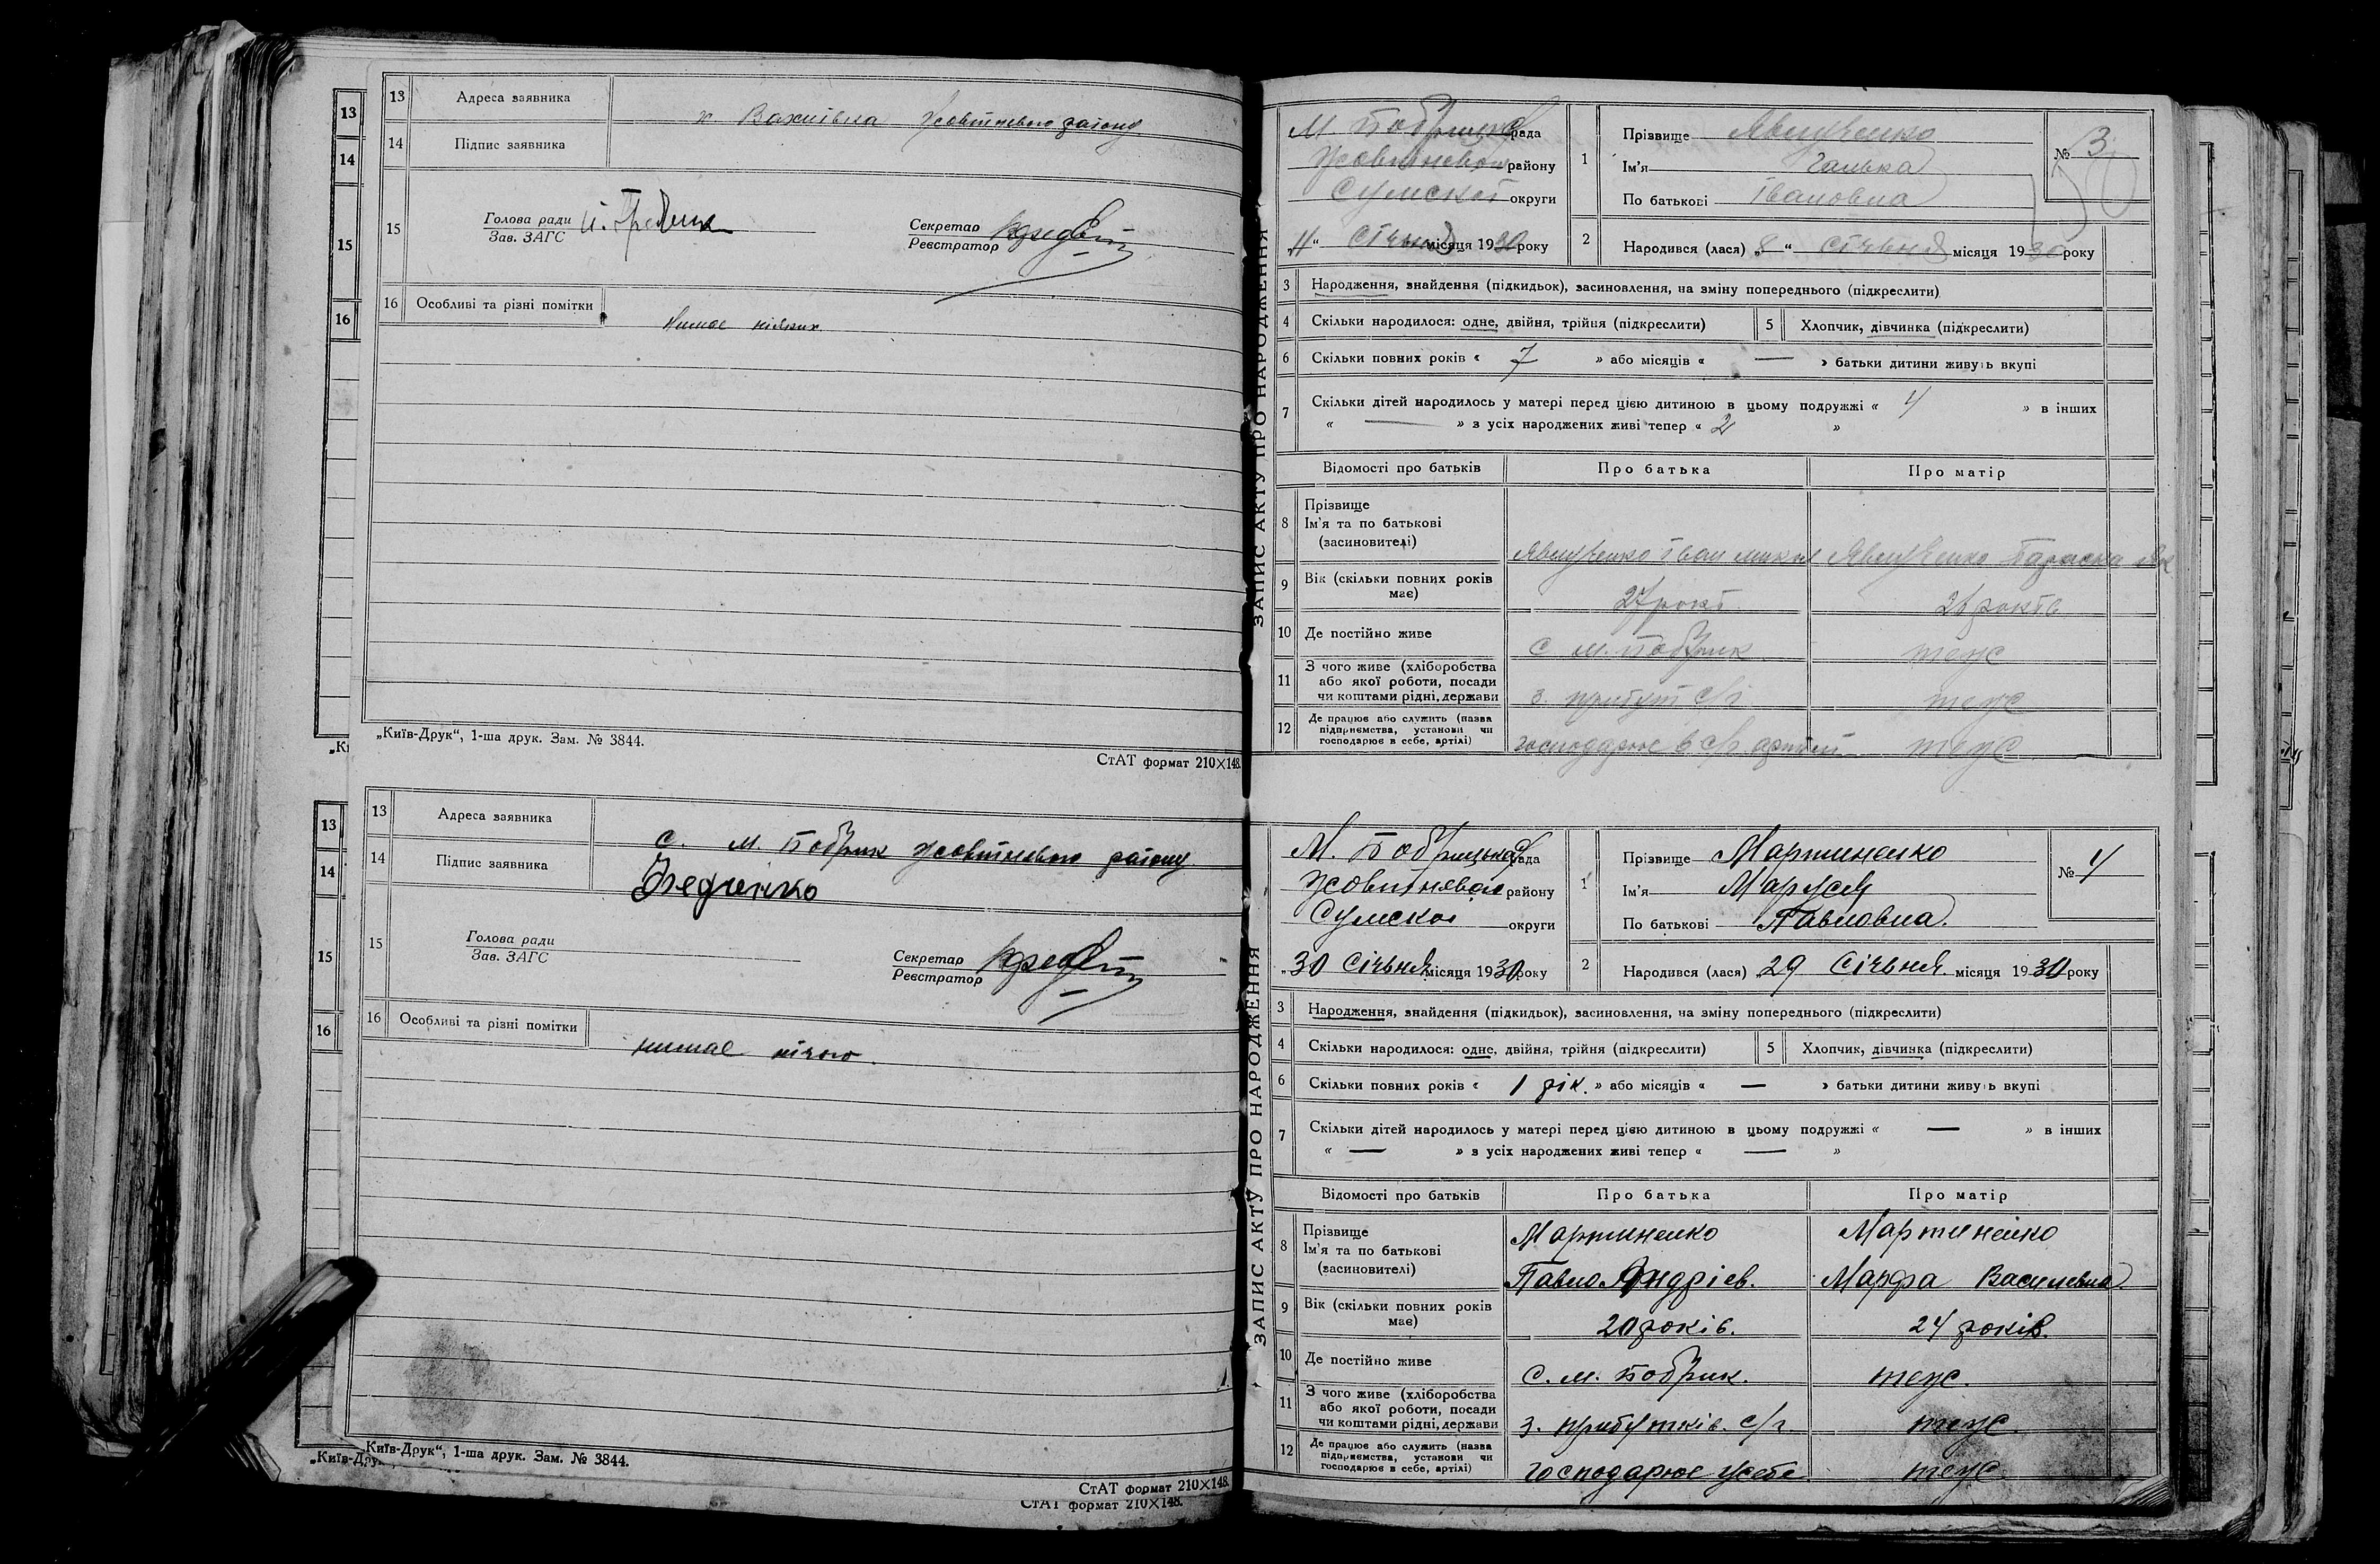 13 Адреса заявника х. Вакнівка Жовтневого району
14 Підпис заявника
15 Голова ради
Зав. ЗАГС
Секретар
Реєстратор
16 Особливі та різні помітки
Немає ніяких
„Київ-Друк“, 1-ша друк. Зам. № 3844.
СтАТ формат 210×148.
13 Адреса заявника с. М. Бобрик Жовтневого району
14 Підпис заявника
15 Голова ради
Зав. ЗАГС
Секретар
Реєстратор
16 Особливі та різні помітки
немає нічого
„Київ-Друк“, 1-ша друк. Зам. № 3844.
СтАТ формат 210×148.
СтАТ формат 210×148.
ЗАПИС АКТУ ПРО НАРОДЖЕННЯ
М. Бобрицька рада
Жовтневого району
Сумської округи
„11“ Січня місяця 1930 року
1 Прізвище Явтушенко
Ім'я Галька
По батькові Івановна
№ 3
2 Народився (лася) „8“ Січьня місяця 1930 року
3 Народження, знайдення (підкидьок), засиновлення, на зміну попереднього (підкреслити)
4 Скільки народилося: одне, двійня, трійня (підкреслити)
5 Хлопчик, дівчинка (підкреслити)
6 Скільки повних років « 7 » або місяців « — » батьки дитини живуть вкупі
7 Скільки дітей народилось у матері перед цією дитиною в цьому подружжі « 4 » в інших
« — » з усіх народжених живі тепер « 2 »
Відомості про батьків Про батька Про матір
8 Прізвище
Ім'я та по батькові
(засиновителі)
Іван Параска
9 Вік (скільки повних років має) 27 рокі 28 років
10 Де постійно живе с. М. Бобрик теж
11 З чого живе (хліборобства або якої роботи, посади чи коштами рідні, держави з. прибут с/г теж
12 Де працює або служить (назва підприємства, установи чи господарює в себе, артілі) господарює в с/г артілі теж
ЗАПИС АКТУ ПРО НАРОДЖЕННЯ
М. Бобрицька рада
Жовтневого району
Сумської округи
„30 Січьня місяця 1930 року
1 Прізвище Мартиненко
Ім'я Маруся
По батькові Павловна.
№ 4
2 Народився (лася) 29 Січьня місяця 1930 року
3 Народження, знайдення (підкидьок), засиновлення, на зміну попереднього (підкреслити)
4 Скільки народилося: одне, двійня, трійня (підкреслити)
5 Хлопчик, дівчинка (підкреслити)
6 Скільки повних років « 1 рік. » або місяців « — » батьки дитини живуть вкупі
7 Скільки дітей народилось у матері перед цією дитиною в цьому подружжі « — » в інших
« — » з усіх народжених живі тепер « — »
Відомості про батьків Про батька Про матір
8 Прізвище
Ім'я та по батькові
(засиновителі)
Мартиненко Мартиненко
Павло Андріев. Марфа Василевна.
9 Вік (скільки повних років має) 20 років. 24 років.
10 Де постійно живе С. М. Бобрик. теж.
11 З чого живе (хліборобства або якої роботи, посади чи коштами рідні, держави з. прибутків. с/г. теж.
12 Де працює або служить (назва підприємства, установи чи господарює в себе, артілі) господарює усебе. теж.